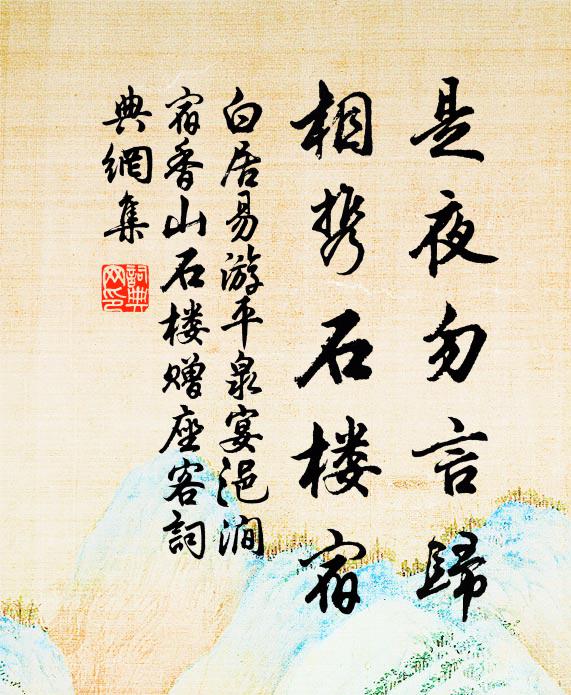 是夜勿言歸
相携石楼宿
白居易游平泉宴浥澗
宿香山石楼赠座客詞
典網集
詞典網印